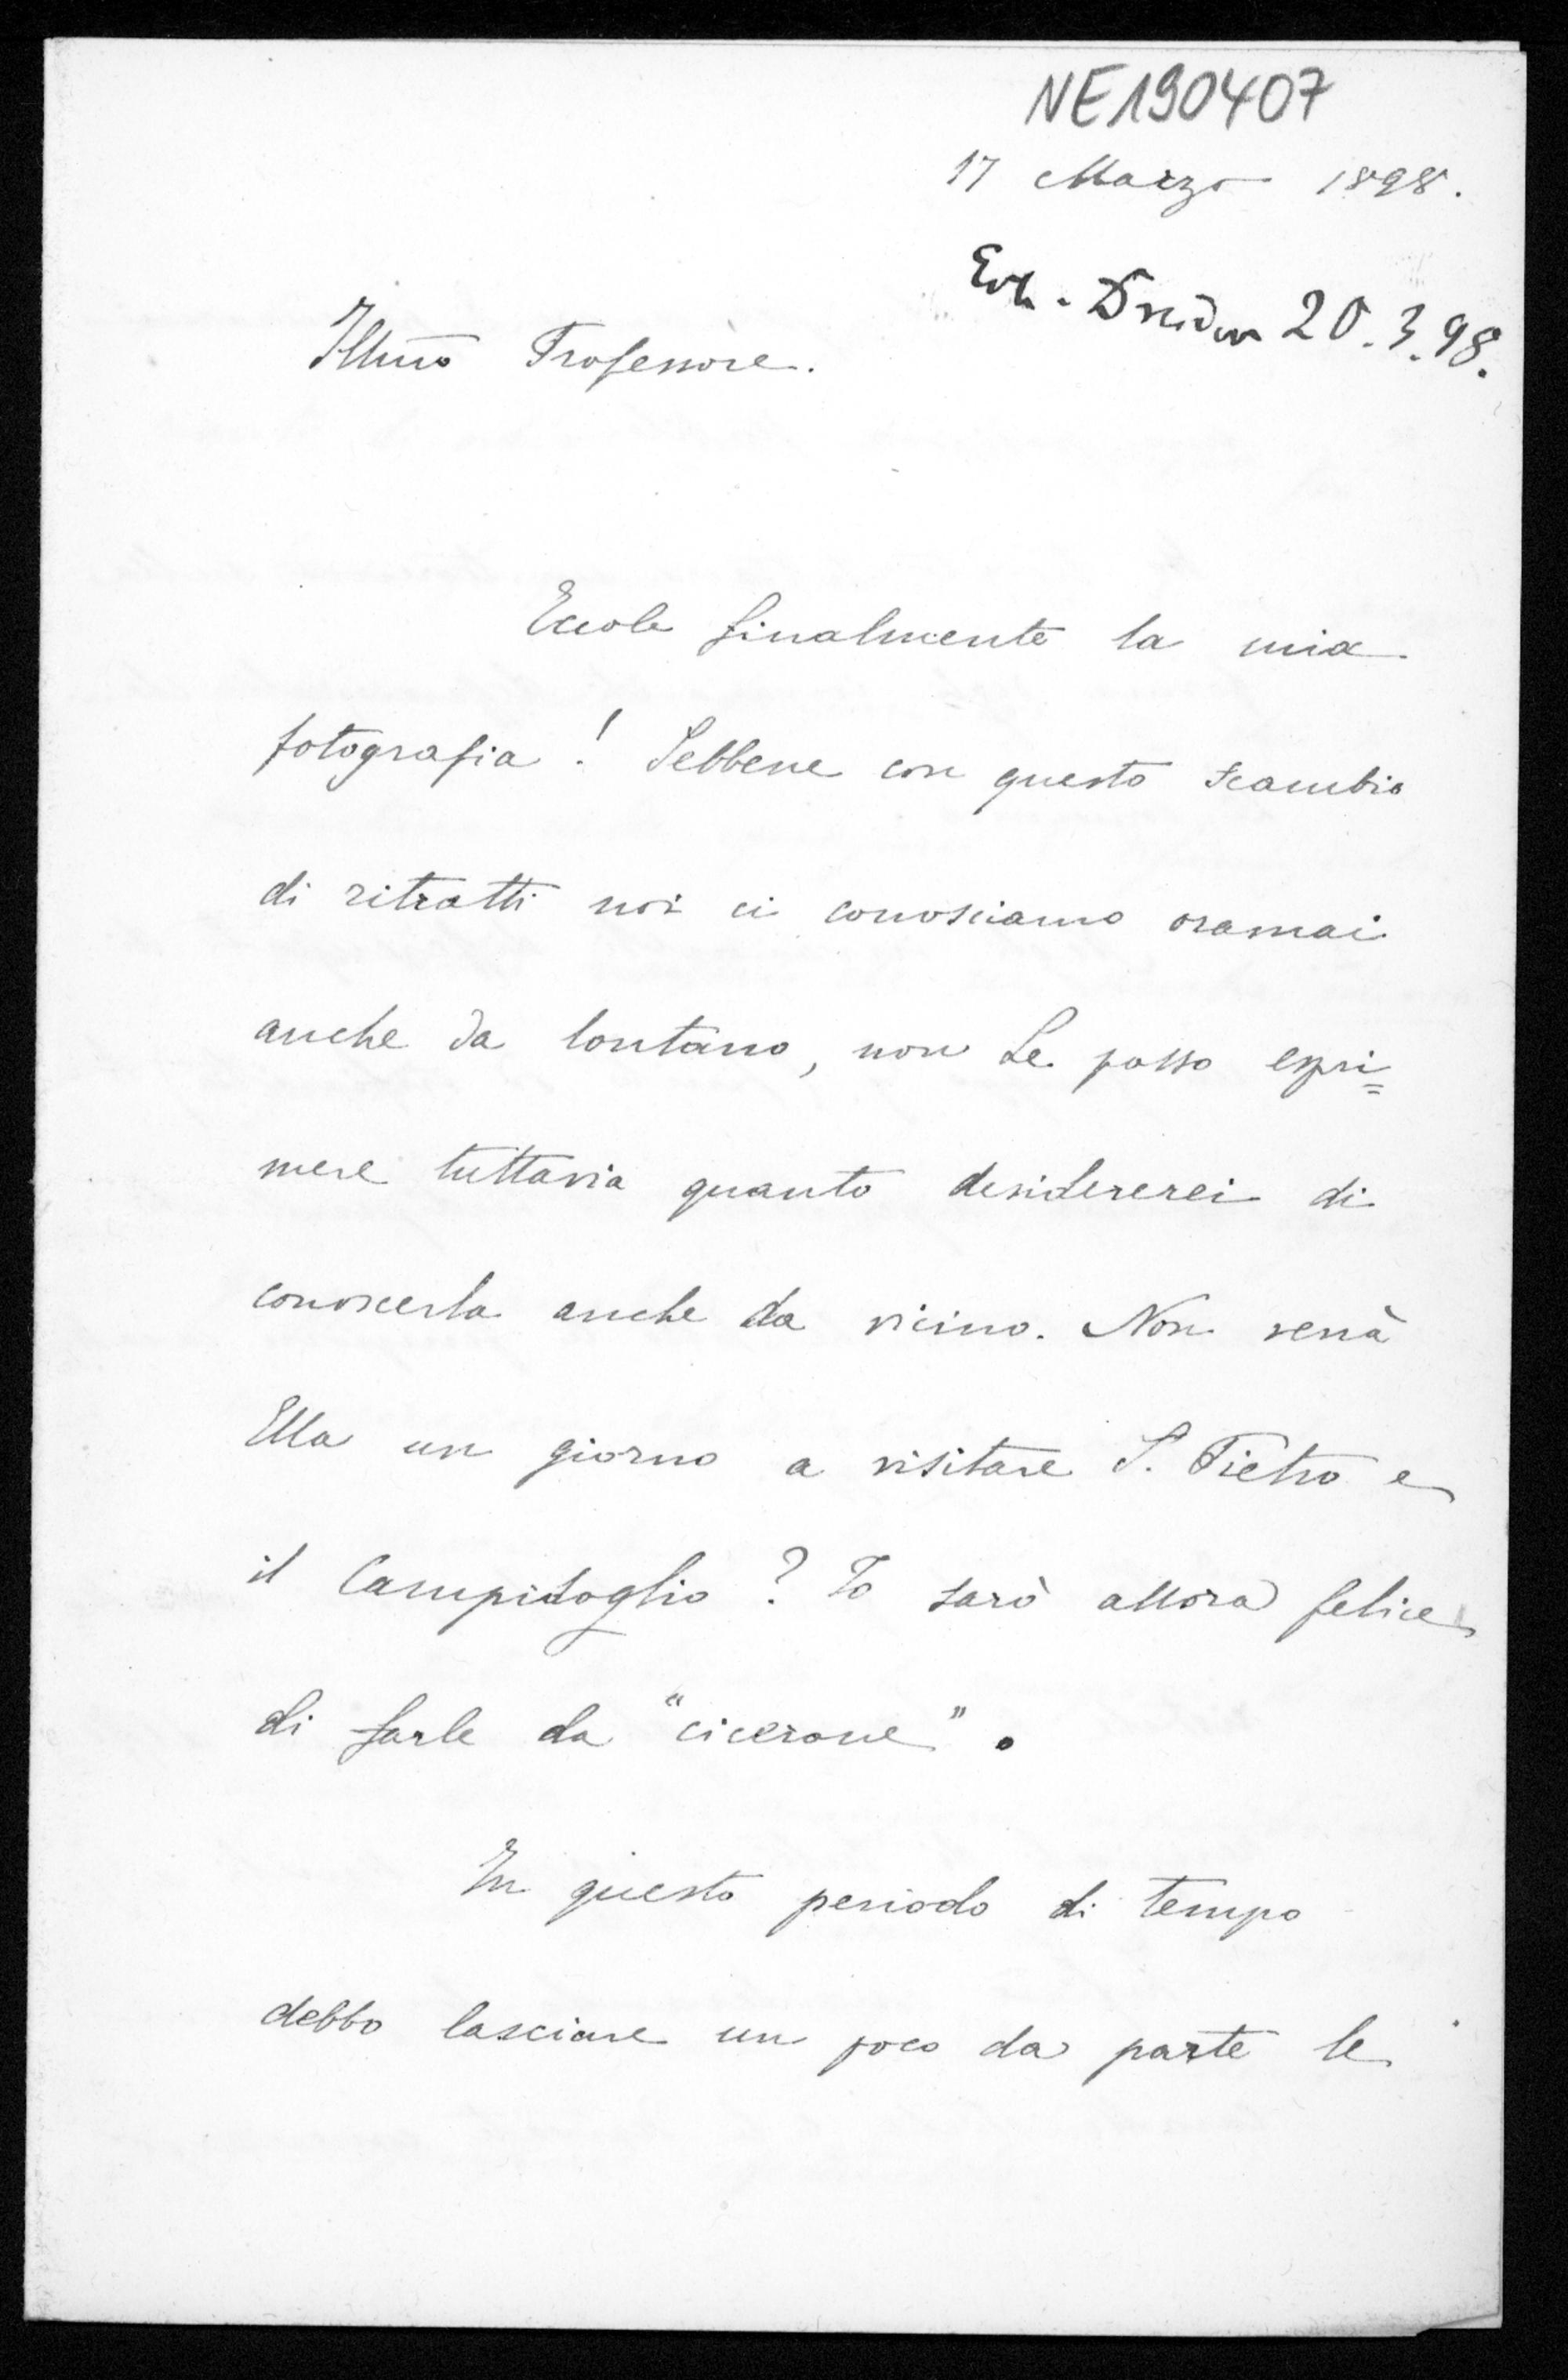 NE190407
17 Marzo 1898.
Erh. Dresden 20.3.98.
Illmo Professore.
Eccole finalmente la mia
fotografia! Sebbene con questo scambio
di ritratti noi ci conosciamo oramai
anche da lontano, non Le posso espri=
mere tuttavia quanto desidererei di
conoscerla anche da vicino. Non verrà
Ella un giorno a visitare S. Pietro e
il Campidoglio? Io sarò allora felice
di farle da "cicerone".
In questo periodo di tempo
debbo lasciare un poco da parte le